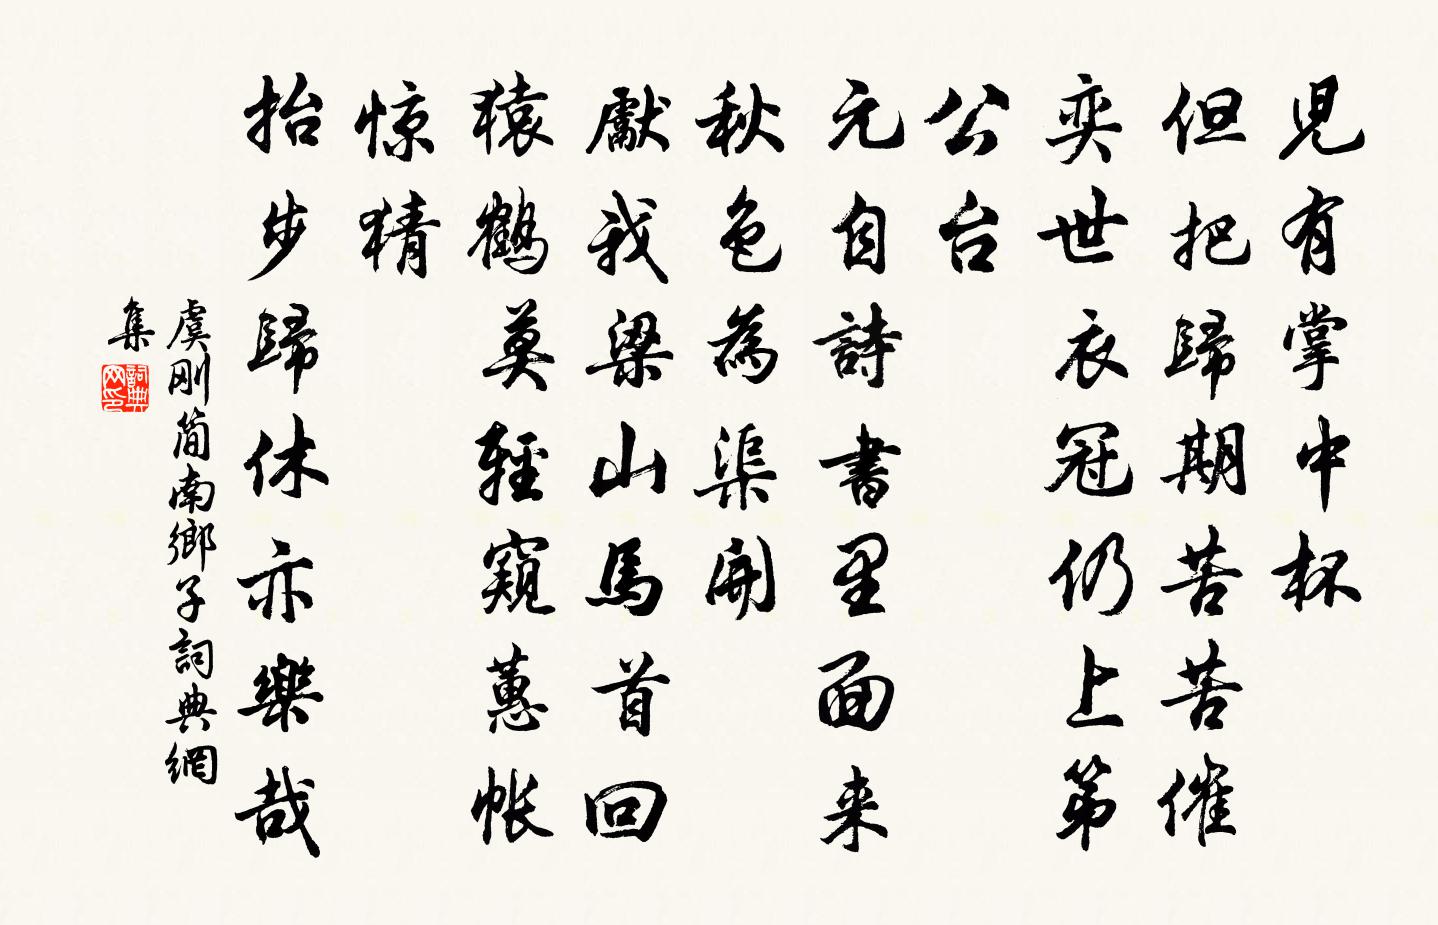 児有掌中杯
但把歸期苦苦催
奕世衣冠仍上第
公台
元自詩書里面来
秋色為渠開
獻我梁山馬首回
猿鶴莫輕窺蕙帳
惊猜
抬步歸休亦樂哉
虞刚简南鄉子詞典網
集
詞典网印